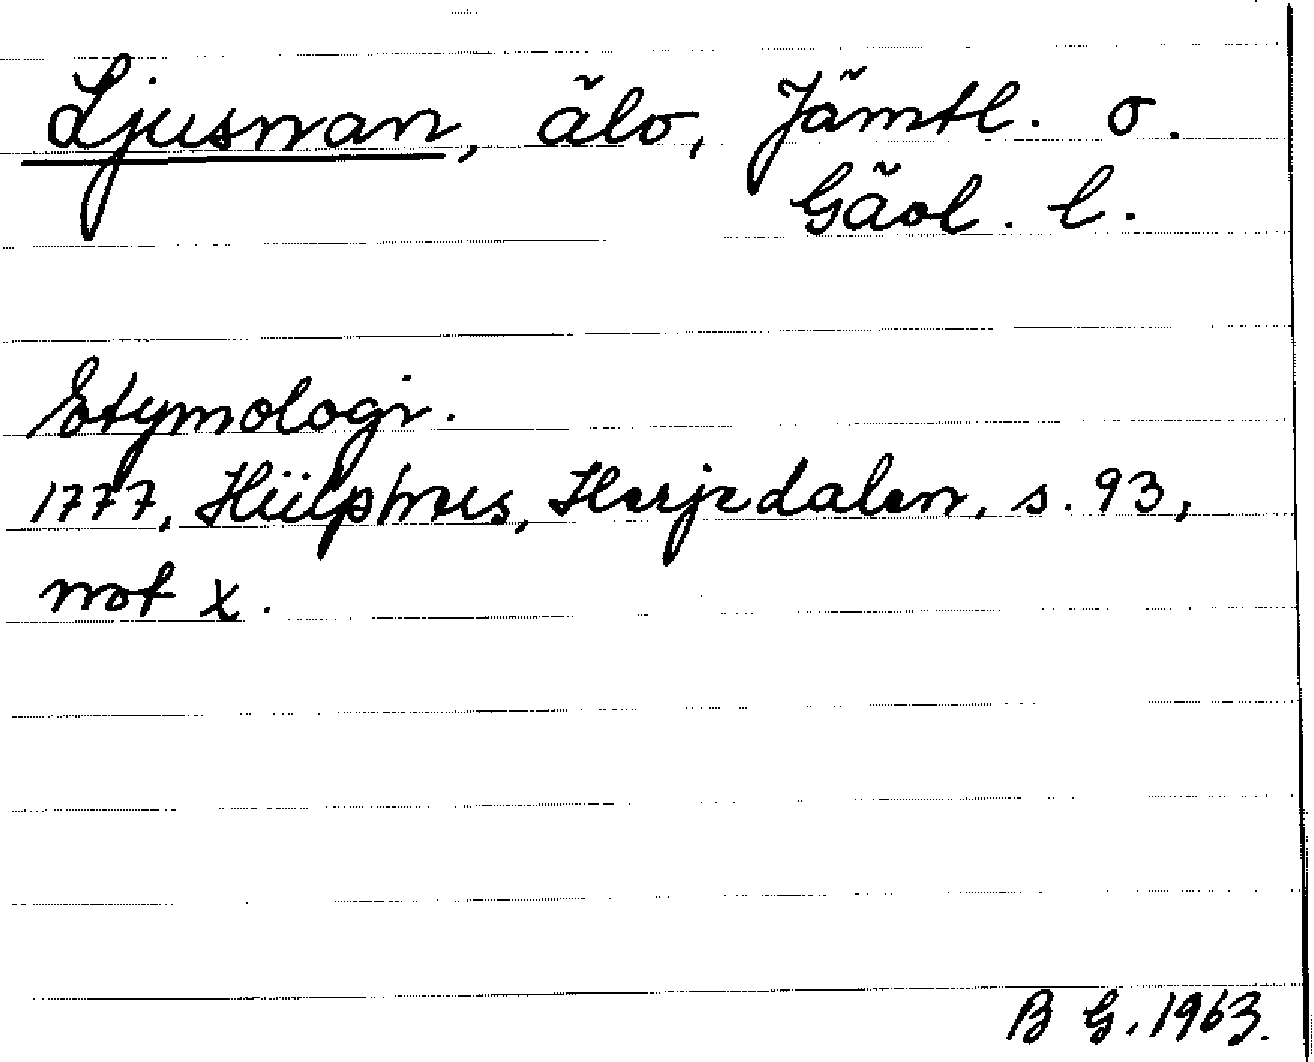 Ljusnan, älv, Jämtl. o.
Gävl. l.
Etymologi.
1777, Hülphers, Herjedalen, s. 93,
not x.
B G. 1963.